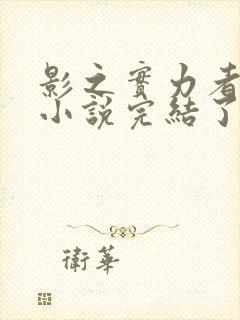 影之實力者
小說完結了
衛華